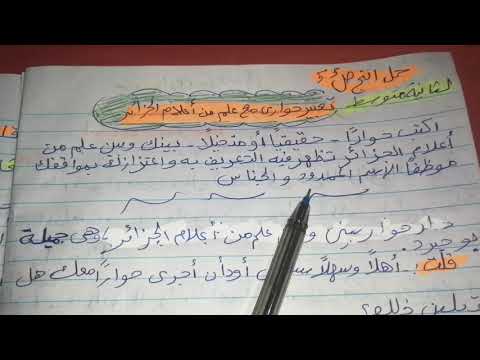 حل انتج ص 55
لثانية متوسط
تعبير حواري مع علم من أعلام الجزائر
اكتب حوارًا - حقيقيًا أو متخيلًا - بينك وبين علم من
أعلام الجزائر تظهر فيه التعريف به واعتزازك بمواقفه
موظفًا الاسم الممدود والجناس
دار حوار بيني و علم من أعلام الجزائر، وهي جميلة
بوحيرد.
قلت: أهلًا وسهلًا أود أن أجري حوارًا معك هل
تقبلين ذلك؟